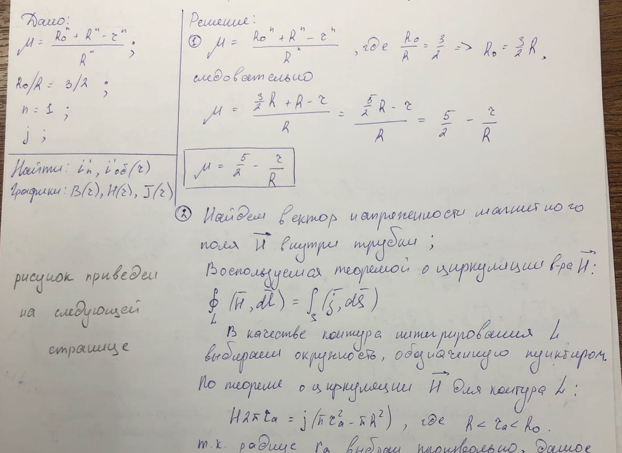 Дано:
μ = (R₀ⁿ + Rⁿ - τⁿ) / Rⁿ ;
R₀/R = 3/2 ;
n = 1 ;
j ;
Найти: i'n, i'об(τ)
Графики: B(τ), H(τ), J(τ)
рисунок приведен
на следующей
странице
Решение:
① μ = (R₀ⁿ + Rⁿ - τⁿ) / Rⁿ , где R₀/R = 3/2 => R₀ = 3/2 R,
следовательно
μ = (3/2 R + R - τ) / R = (5/2 R - τ) / R = 5/2 - τ/R
μ = 5/2 - τ/R
② Найдем вектор напряженности магнитного
поля H⃗ внутри трубки ;
Воспользуемся теоремой о циркуляции в-ра H⃗:
∮_L (H⃗, dl⃗) = ∫_S (j⃗, dS⃗)
В качестве контура интегрирования L
выбираем окружность, обозначенную пунктиром
По теореме о циркуляции H⃗ для контура L:
H2πτₐ = j(πτₐ² - πR²) , где R < τₐ < R₀.
т.к. радиус τₐ выбран произвольно, данное